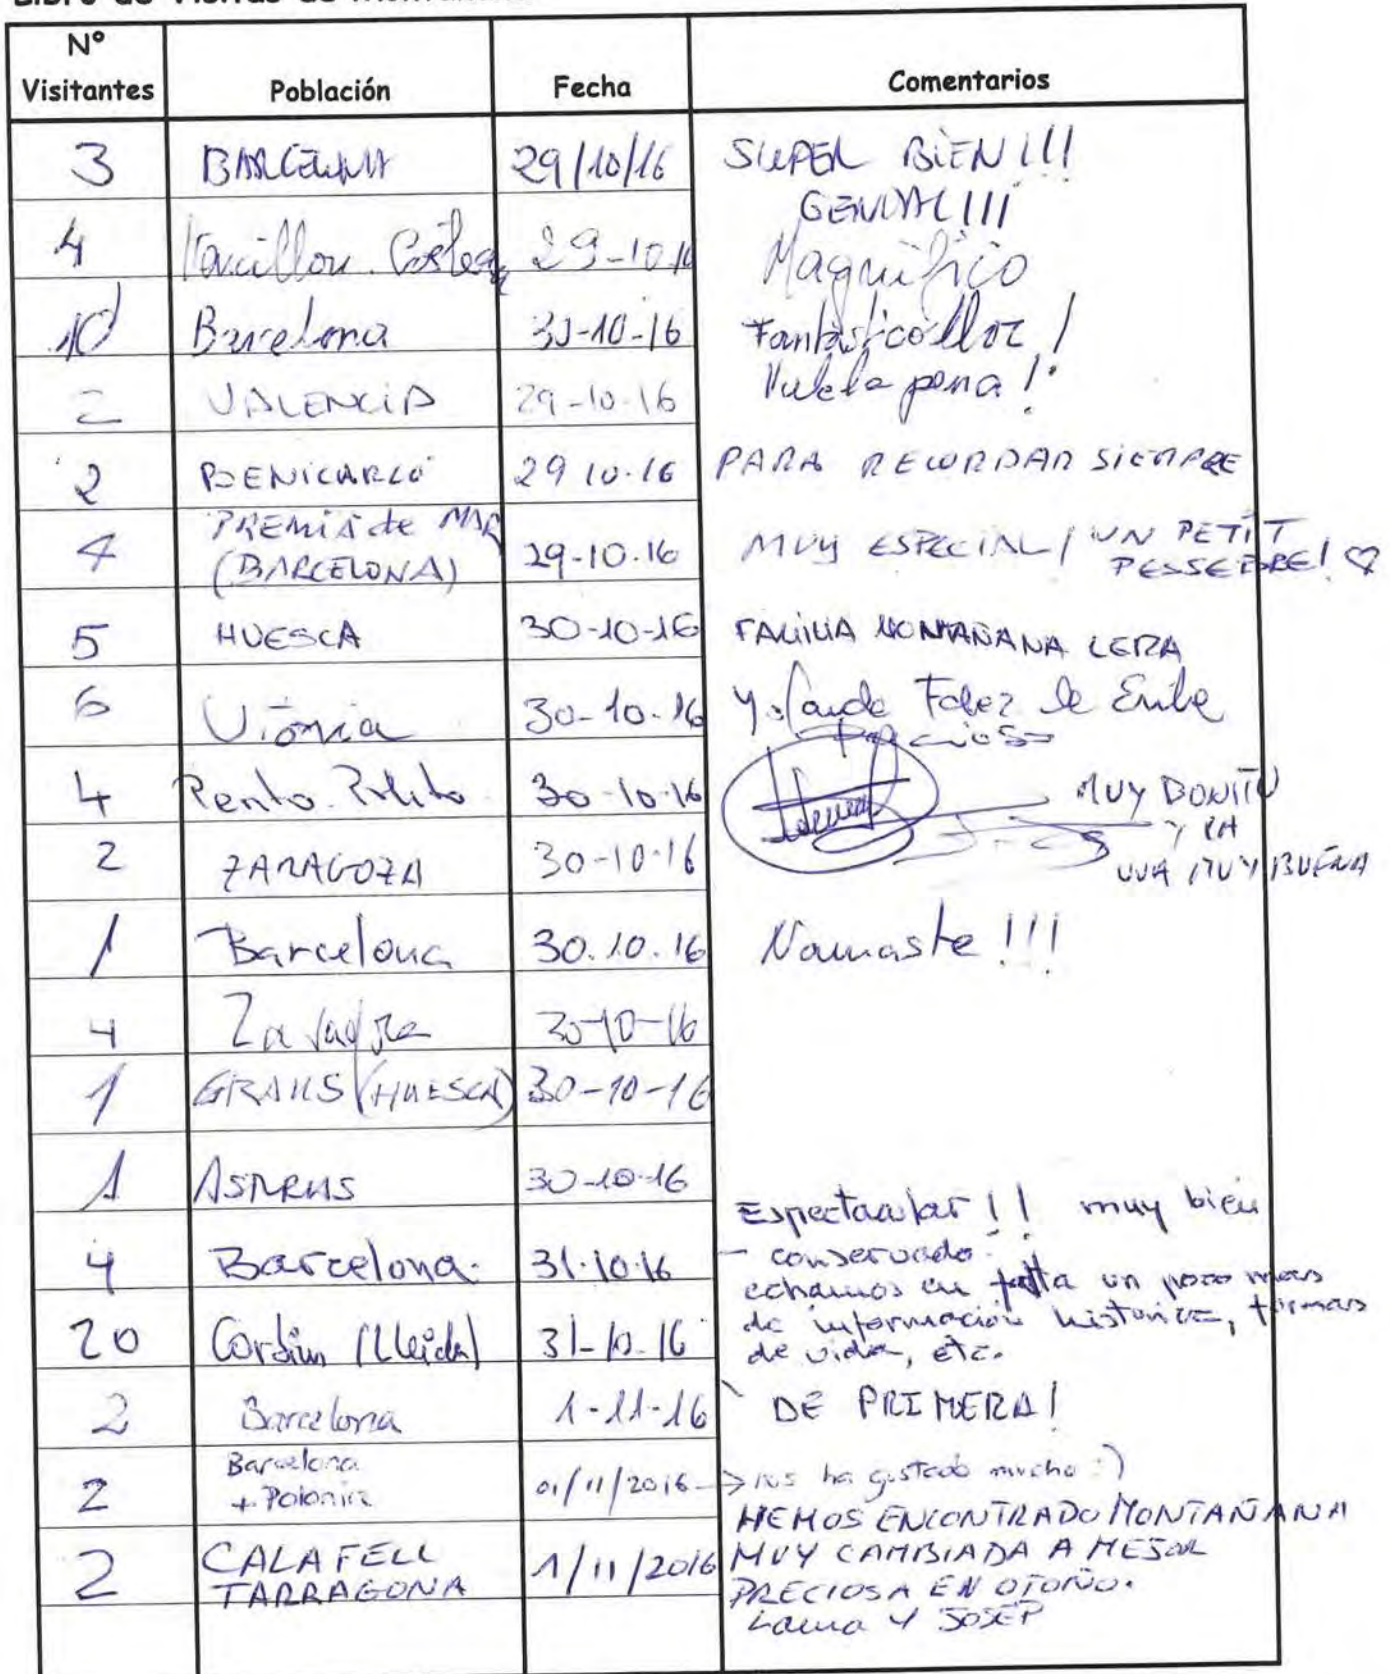 Nº Visitantes Población Fecha Comentarios
3 BARCELONA 29/10/16 SUPER BIEN!!!
GENIAL!!!
4 29-10-16 Magnífico
10 Barcelona 30-10-16 Fantástico lloc!
Vale la pena!
2 VALENCIA 29-10-16
2 BENICARLÓ 29 10.16 PARA RECORDAR SIEMPRE
4 PREMIÀ de MAR
(BARCELONA) 29-10.16 MUY ESPECIAL / UN PETIT
PESSEBRE! ♡
5 HUESCA 30-10-16 FAMILIA MONTAÑANA LERA
6 Vitoria 30-10-16 Yolanda
Precioso
4 30-10-16 MUY BONITO
Y
2 ZARAGOZA 30-10-16 MUY BUENA
1 Barcelona 30.10.16 Namaste!!!
4 30-10-16
1 GRAUS (HUESCA) 30-10-16
1 30-10-16
Espectacular!! muy bien
4 Barcelona. 31.10.16 - conservado.
echamos en falta un poco mas
20 (Lleida) 31-10-16 de información historica, formas
de vida, etc.
2 Barcelona 1-11-16 DE PRIMERA!
2 Barcelona
+ Polonia 01/11/2016 → nos ha gustado mucho :)
HEMOS ENCONTRADO MONTAÑANA
2 CALAFELL
TARRAGONA 1/11/2016 MUY CAMBIADA A MEJOR
PRECIOSA EN OTOÑO.
Laura Y JOSEP